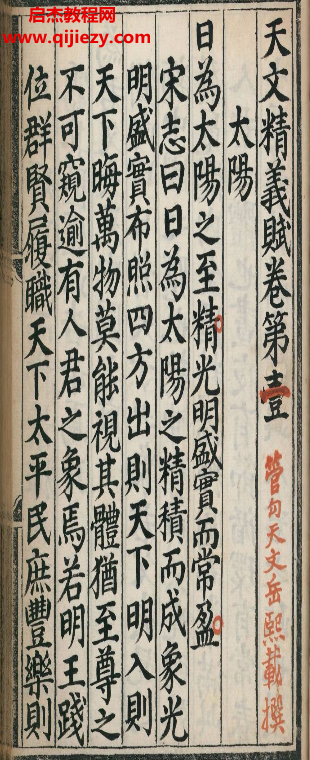 启杰教程网
www.qijiezy.com
天文精義賦卷第壹
管勾天文岳熙載撰
太陽
日為太陽之至精光明盛實而常盈
宋志曰日為太陽之精積而成象光
明盛實布照四方出則天下明入則
天下晦萬物莫能視其體猶至尊之
不可窺逾有人君之象焉若明王踐
位群賢履職天下太平民庶豐樂則